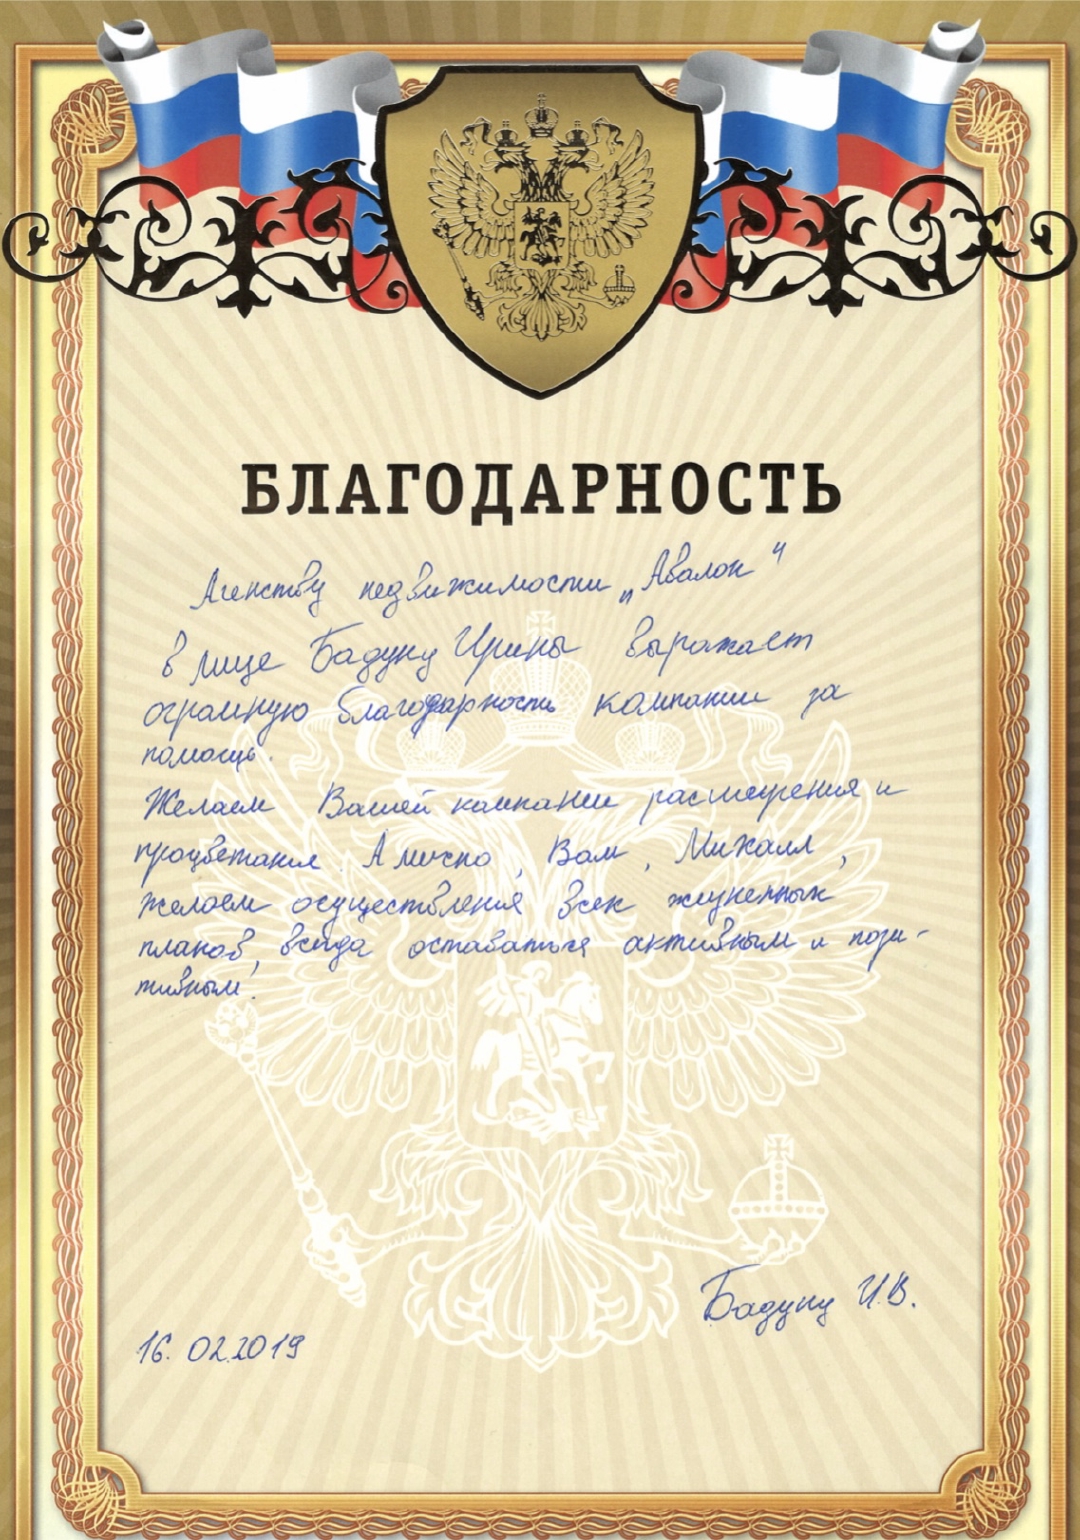 БЛАГОДАРНОСТЬ
Агенству недвижимости „Авалон"
в лице Бадуну Ирины выражает
огромную благодарность компании за
помощь.
Желаем Вашей компании расширения и
процветания. А лично, Вам, Михаил,
желаем осуществления всех жизненных
планов, всегда оставаться активным и пози-
тивным!
Бадуну И.В.
16.02.2019